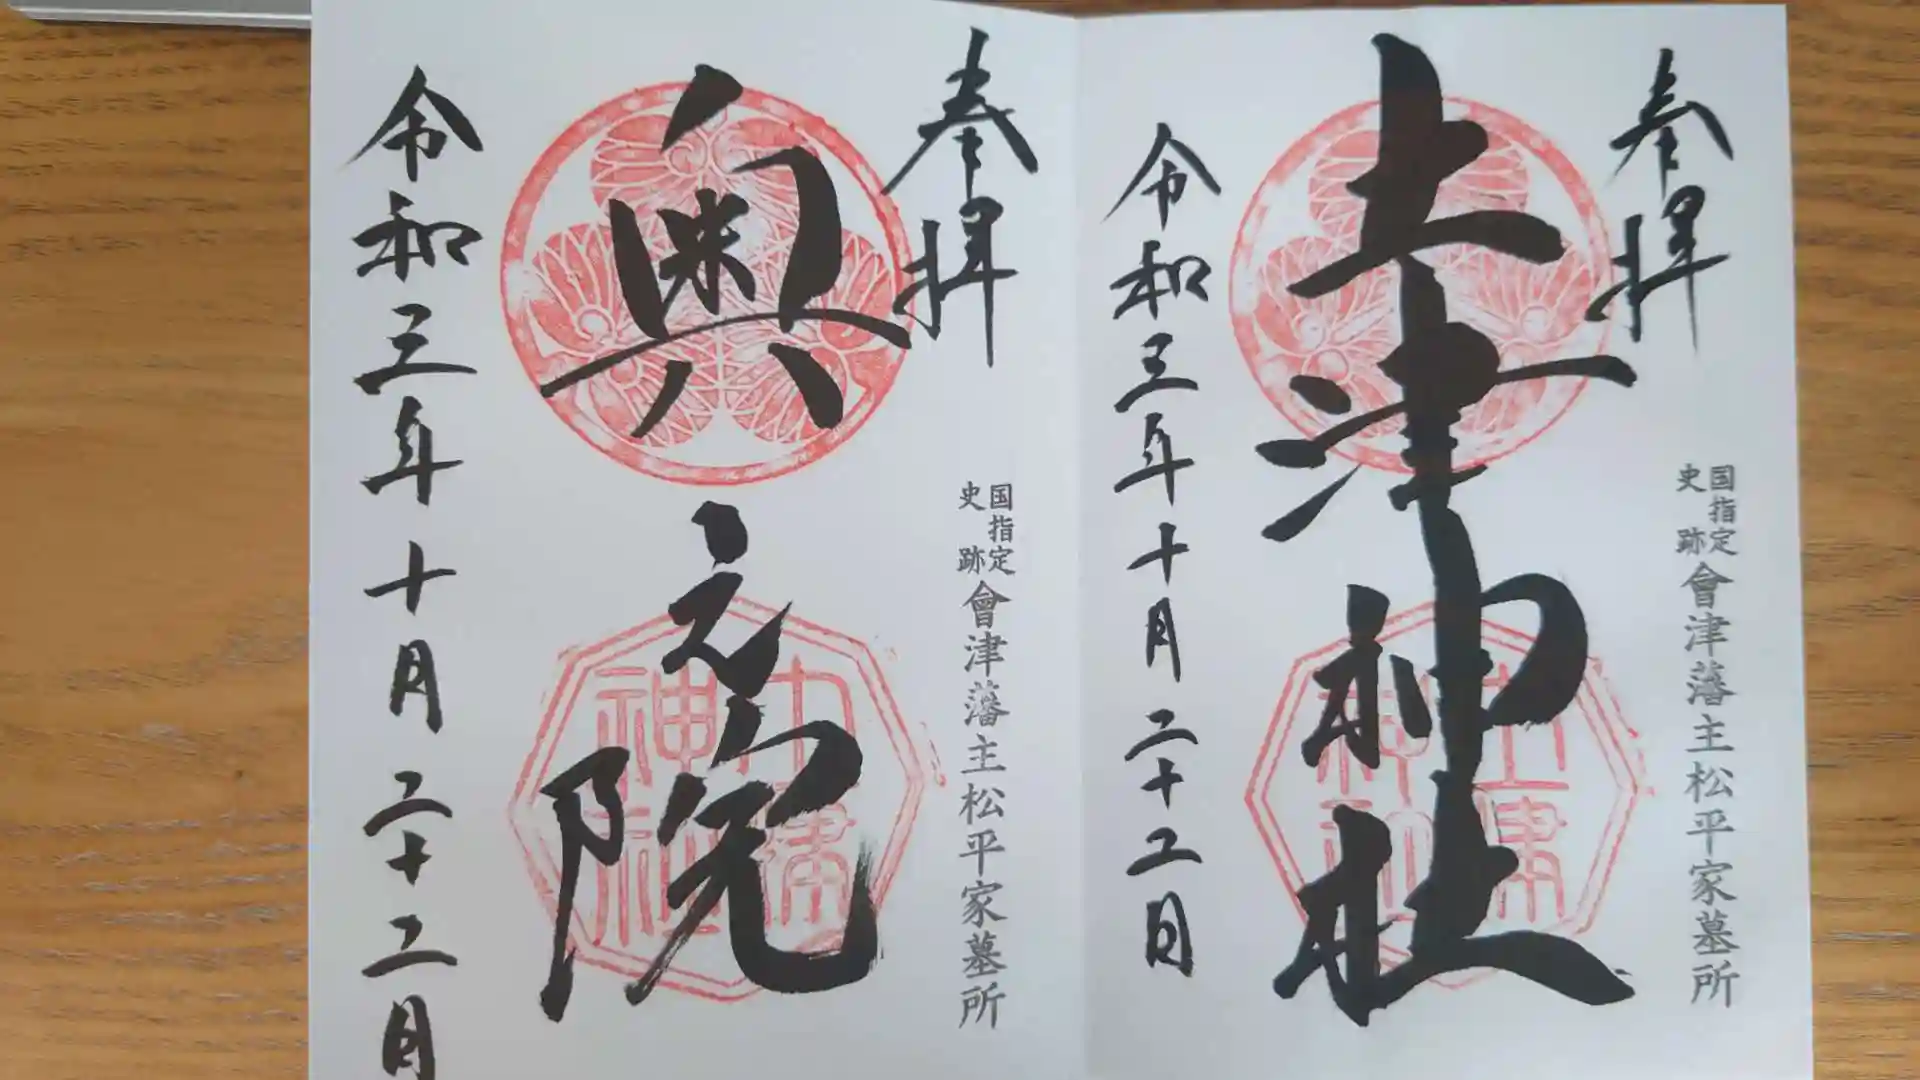 奉拝
国指定
史跡
會津藩主松平家墓所
土津神社
土津
神社
令和三年十月二十二日
奉拝
国指定
史跡
會津藩主松平家墓所
奥之院
土津
神社
令和三年十月二十二日